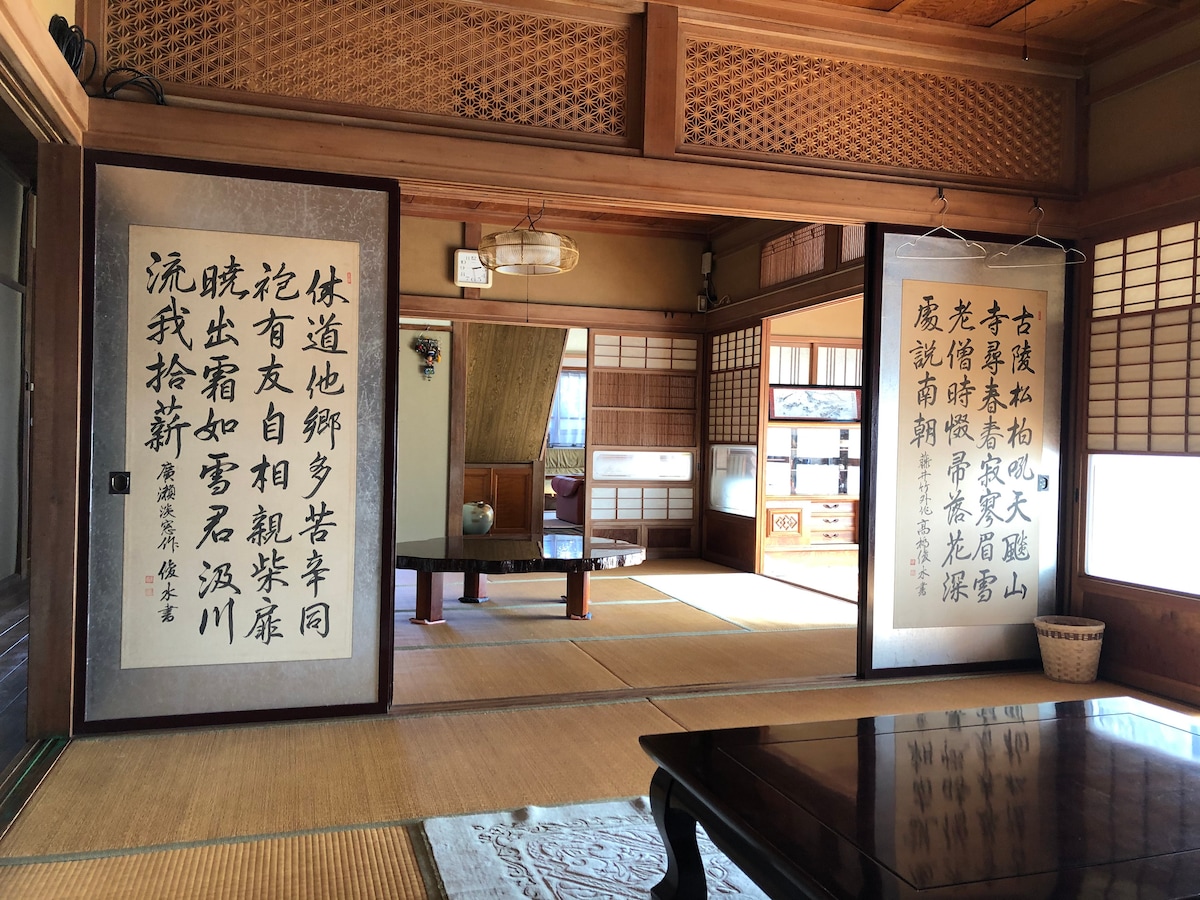 古陵松柏吼天飈山
寺尋春春寂寥眉雪
老僧時惙帚落花深
處説南朝
藤井竹外作 高橋俊水書
休道他郷多苦辛同
袍有友自相親柴扉
暁出霜如雪君汲川
流我拾薪
廣瀬淡窓作 俊水書